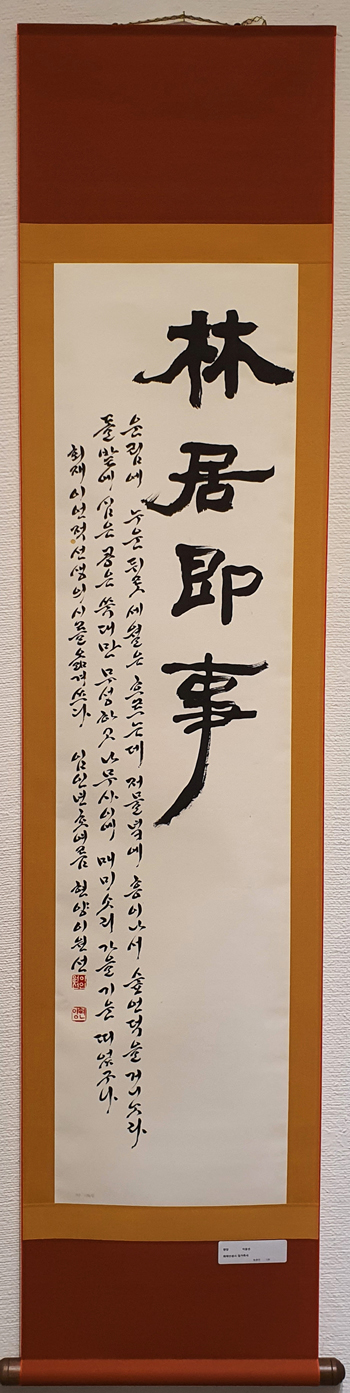 林居即事
운림에 누운 뒤로 세월은 흐르는데 저물녘에 흥이나서 숲언덕을 거니노라
돌밭에 심은 콩은 쑥대만 무성하고 나무사이에 매미소리 가을 띠었구나
회재 이언적선생의 시를 옮겨쓰다 임인년 초여름 현양 이원선